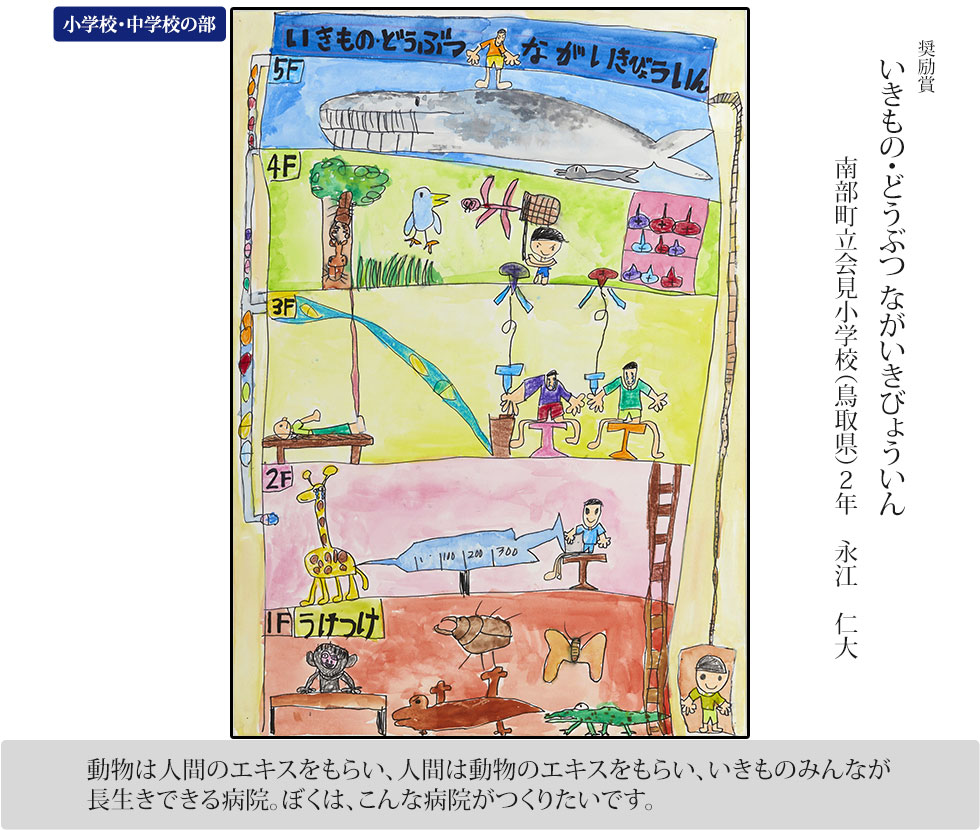 小学校・中学校の部
いきもの・どうぶつ ながいきびょういん
5F
4F
3F
2F
100 200 300
1F うけつけ
奨励賞
いきもの・どうぶつ ながいきびょういん
南部町立会見小学校(鳥取県)2年 永江 仁大
動物は人間のエキスをもらい、人間は動物のエキスをもらい、いきものみんなが
長生きできる病院。ぼくは、こんな病院がつくりたいです。